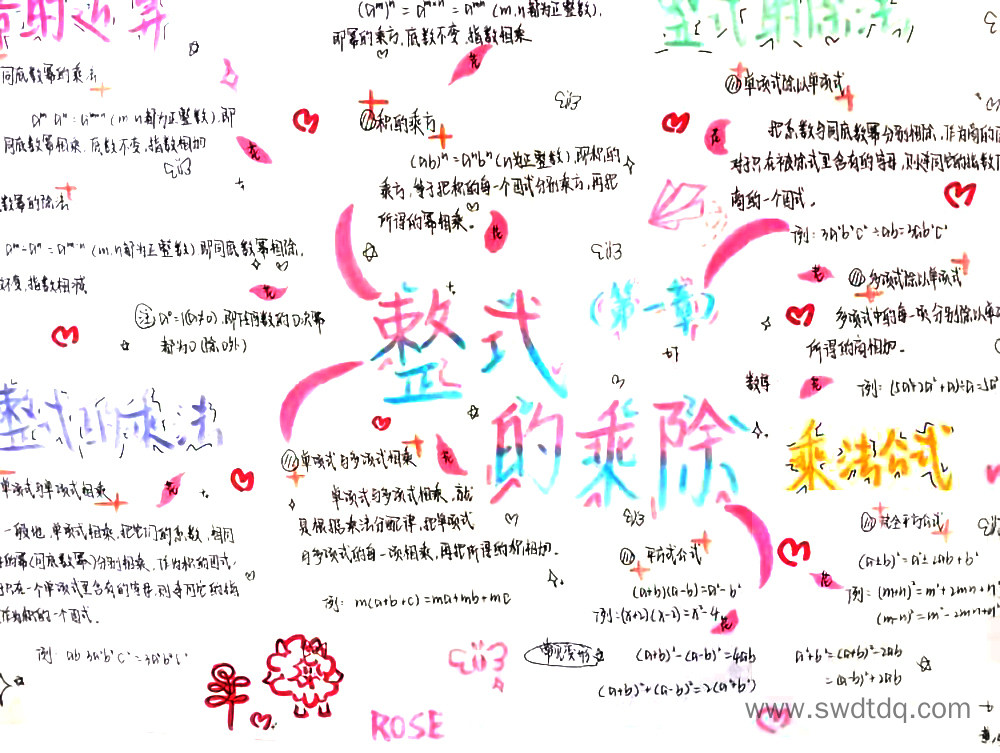 幂的运算
同底数幂的乘法
aᵐ·aⁿ=aᵐ⁺ⁿ(m,n都为正整数),即
同底数幂相乘,底数不变,指数相加
数幂的除法
aᵐ÷aⁿ=aᵐ⁻ⁿ(m,n都为正整数)即同底数幂相除,
不变,指数相减
注 a⁰=1(a≠0),即任何数的0次幂
都为0(除0外)
(aᵐ)ⁿ=aᵐˣⁿ=aᵐⁿ(m,n都为正整数),
即幂的乘方,底数不变,指数相乘
(1)积的乘方
(ab)ⁿ=aⁿbⁿ(n为正整数),即积的
乘方,等于把积的每一个因式分别乘方,再把
所得的幂相乘。
整式的除法
(1)单项式除以单项式
把系数与同底数幂分别相除,作为商的
对于只在被除式里含有的字母,则连同它的指数
商的一个因式。
(11)多项式除以单项式
多项式中的每一项分别除以单
所得的商相加。
整式
(第一章)
的乘除
整式的乘法
单项式与单项式相乘
一般地,单项式相乘,把它们的系数,相同
的幂(同底数幂)分别相乘,作为积的因式,
只在一个单项式里含有的字母,则连同它的指
作为积的一个因式。
(11)单项式与多项式相乘
单项式与多项式相乘,就
是根据乘法分配律,把单项式
与多项式的每一项相乘,再把所得的积相加。
例: m(a+b+c)=ma+mb+mc
乘法公式
(1)平方式公式
(a+b)(a-b)=a²-b²
例:(x+2)(x-2)=x²-4
(11)完全平方公式
(a±b)²=a²±2ab+b²
例:(m+n)²=m²+2mn+n²
(m-n)²=m²-2mn+n²
常见变形
(a+b)²-(a-b)²=4ab
(a+b)²+(a-b)²=2(a²+b²)
a²+b²=(a+b)²-2ab
=(a-b)²+2ab
ROSE
www.swdtdq.com